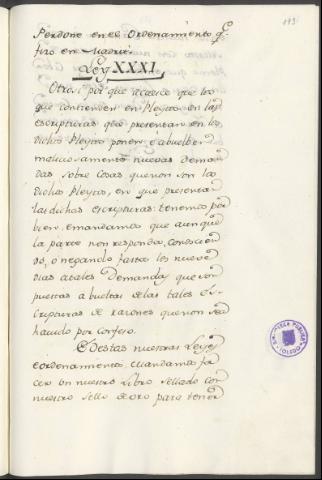 193
Perdone en el Ordenamiento q.e
fizo en Madrid.
Ley XXXI.
Otrosi por que acaesce que los
que contienden en Pleytos en las
escripturas que presentan en los
dichos Pleytos ponen é abuelben
maliciosamente nuevas deman
das sobre cosas que non son los
dichos Pleytos, en que presentan
las dichas escripturas: tenemos por
bien, è mandamos que aunque
la parte non responda, conoscien
do, o negando fasta los nueve
dias a tales Demandas que son
puestas a bueltas de las tales es
cripturas de razones que non sea
hauido por confeso.
E Destas nuestras Leyes
è ordenamientos mandamos fa
cer un nuestro Libro sellado con
nuestro sello de oro para tener
BIBLIOTECA PUBLICA
TOLEDO